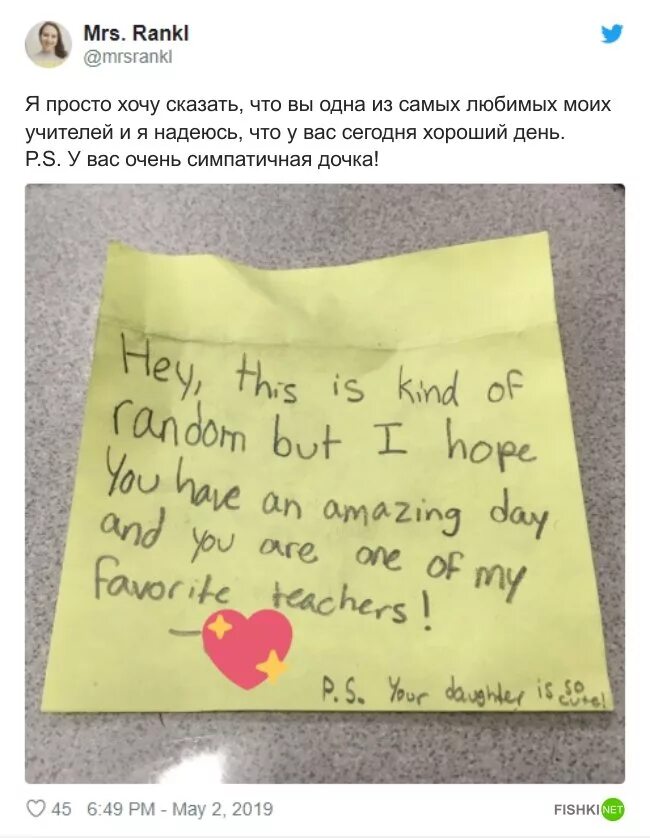 Mrs. Rankl
@mrsrankl
Я просто хочу сказать, что вы одна из самых любимых моих
учителей и я надеюсь, что у вас сегодня хороший день.
P.S. У вас очень симпатичная дочка!
Hey, this is kind of
random but I hope
You have an amazing day
and you are one of my
favorite teachers!
—
P.S. Your daughter is so
cute!
45 6:49 PM - May 2, 2019
FISHKI NET